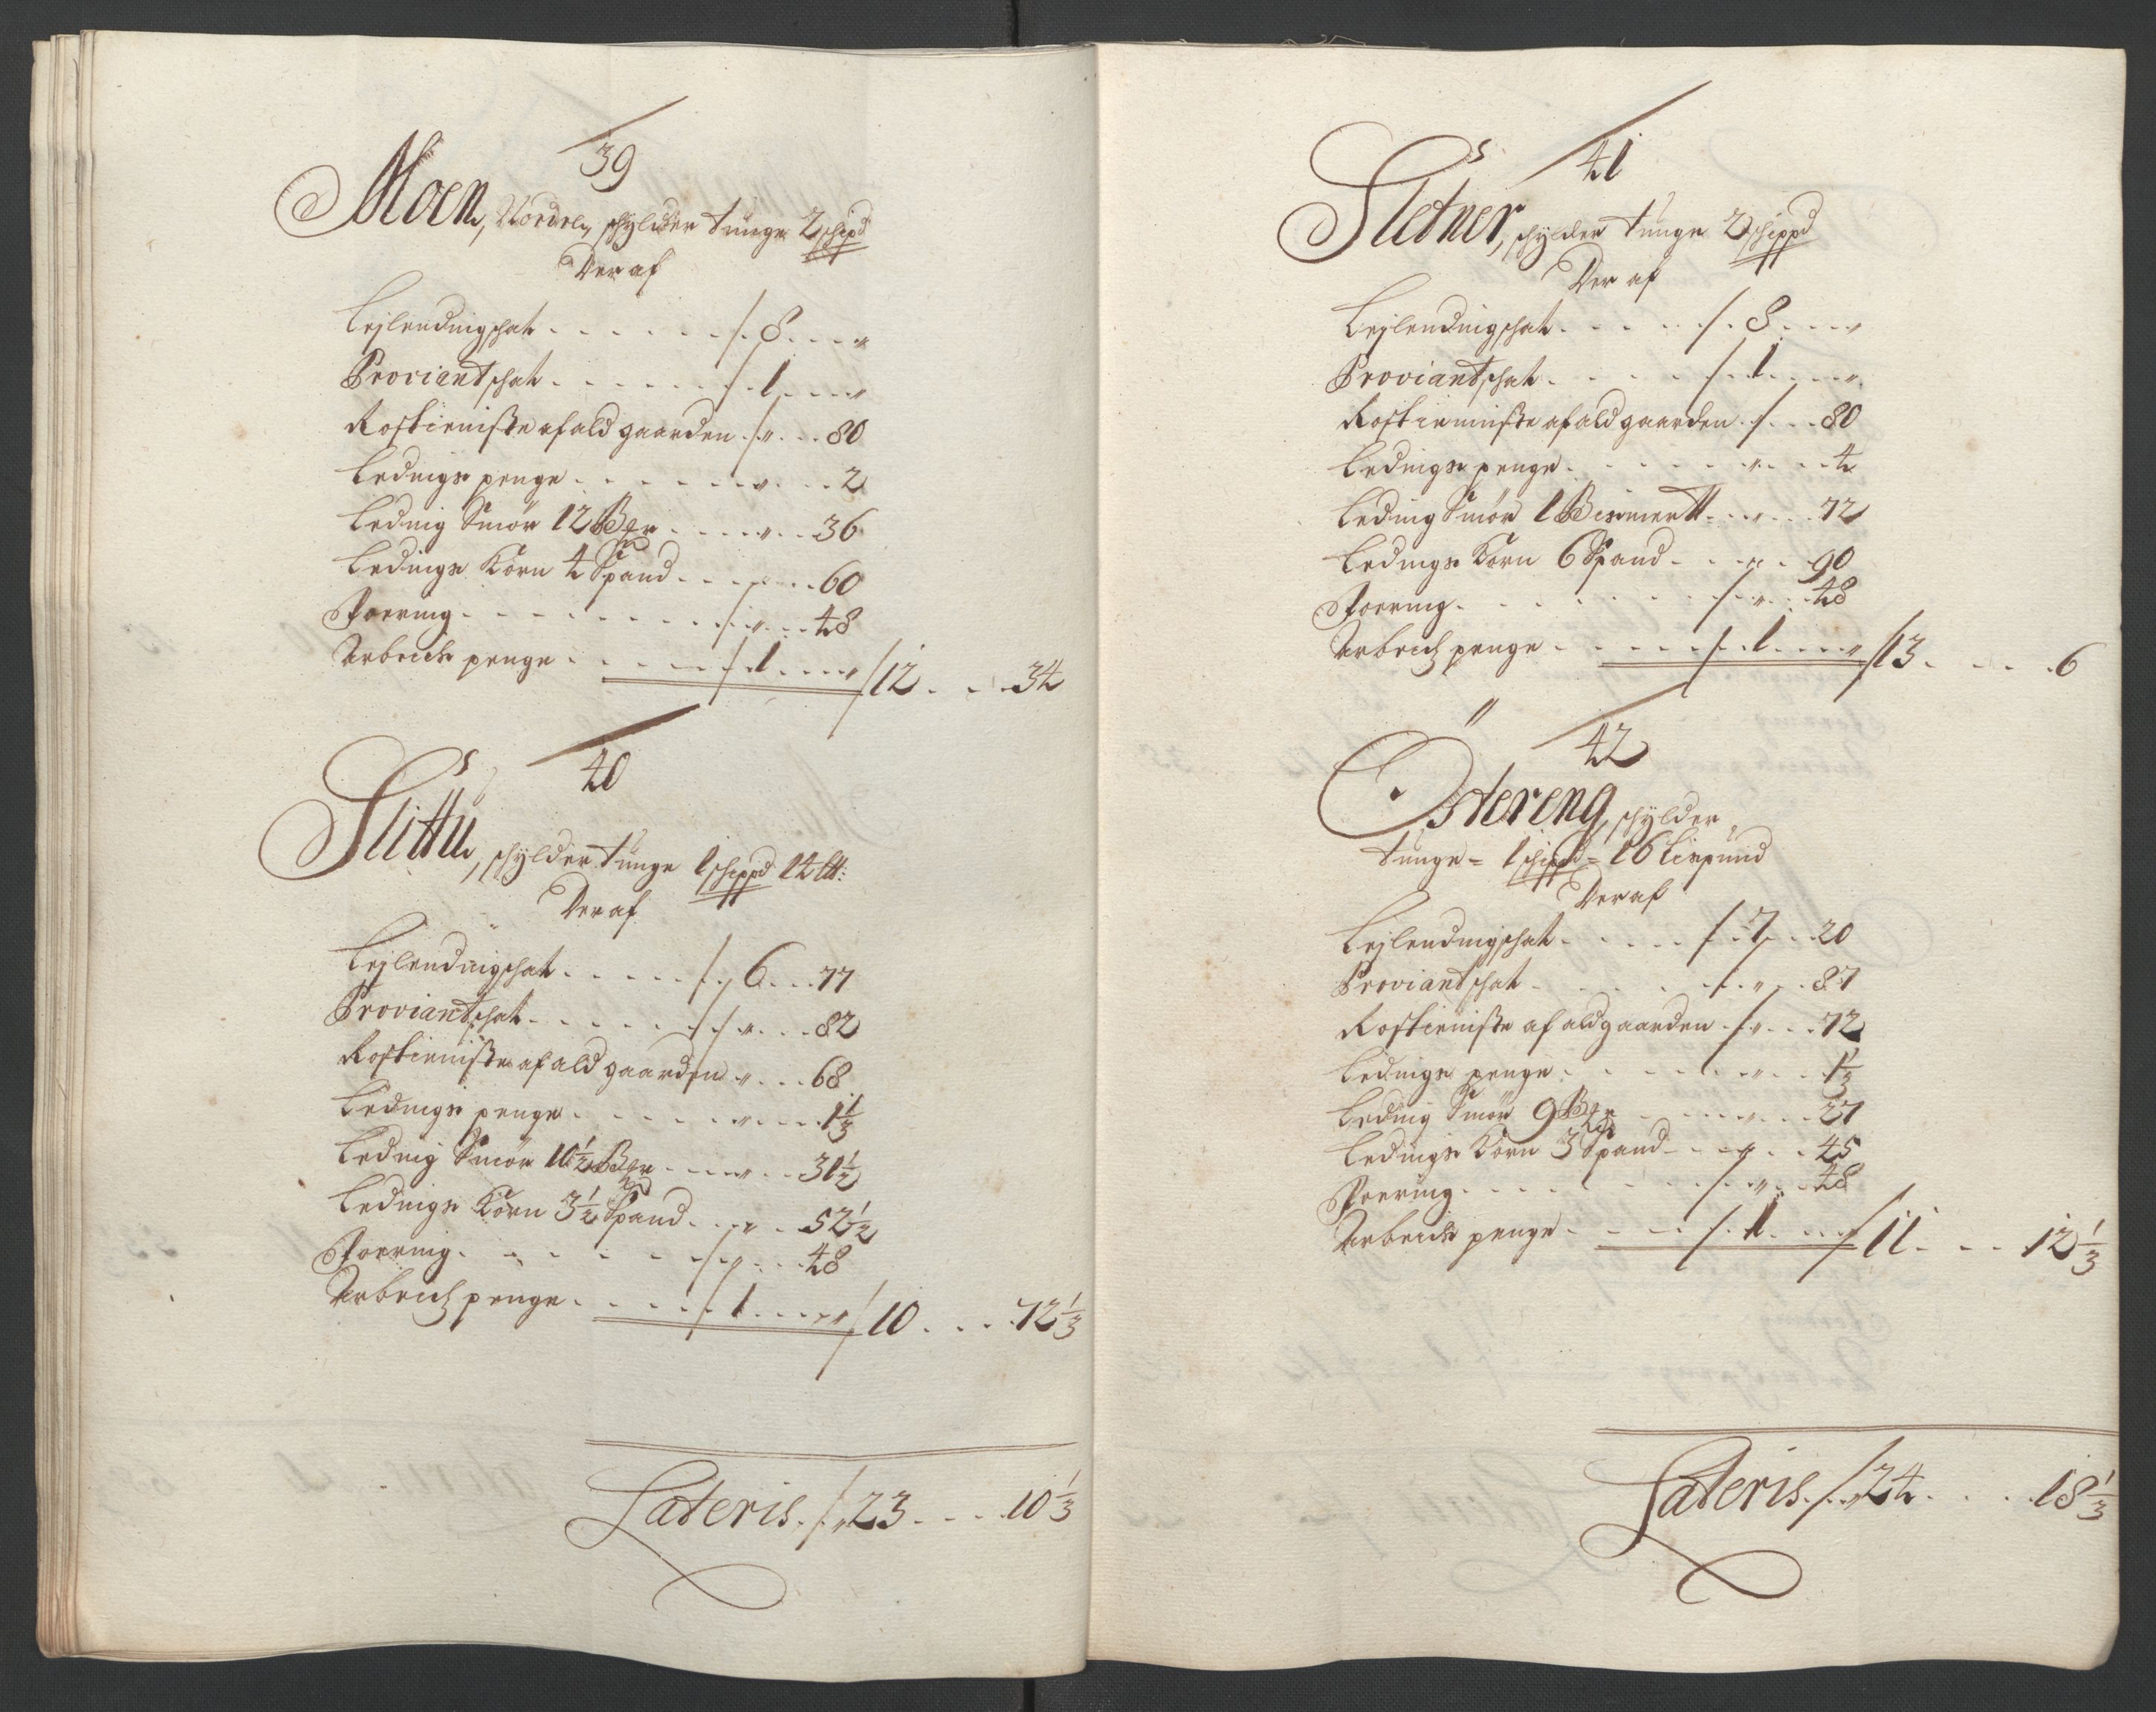 39
Moen, Nordre, schylder tunge 2 schipd
Der af
Lejlendingschat . . . . . . /. 8 . . . "
Proviantschat . . . . . . /. 1 . . . "
Rostieniste af ald gaarden . /. " . . . 80
Ledings penge . . . . . . " . . . 2
Leding Smör 12 Bgr . . . . " . . . 36
Ledings Korn 4 Spand . . . " . . . 60
Foering . . . . . . . . /. " . . . 48
Arbeids penge . . . . . /. 1 . . . " /12 . . . 34
40
Slittu, schylder tunge 1 schippd 14 lt:
Der af
Lejlendingschat . . . . . /. 6 . . . 77
Proviantschat . . . . . . /. " . . . 82
Rostieniste af ald gaarden " . . . 68
Ledings penge . . . . . . " . . . 1 1/3
Leding Smör 10 1/2 Bgr . . . . " . . . 31 1/2
Ledings Korn 3 1/2 Spand . . . " . . . 52 1/2
Foering . . . . . . . /. " . . . 48
Arbeids penge . . . . . /. 1 . . . " /10 . . . 72 1/3
Lateris . /. 23 . . . 10 1/3
41
Sletner, schylder tunge 2 schippd
Der af
Lejlendingschat . . . . . /. 8 . . . "
Proviantschat . . . . . /. 1 . . . "
Rostienniste af ald gaarden . /. . . 80
Ledings penge . . . . . . " . . . 4
Leding Smör 1 Bismertt . . . " . . . 72
Ledings Korn 6 Spand . . . " . . 90
Foering . . . . . . . . /. " . . . 48
Arbeids penge . . . . . /. 1 . . . " /13 . . . . 6
42
Östereng, schylder
tunge = 1 schippd = 16 Lispund
Der af
Lejlendingschat . . . . . /. 7 . . . 20
Proviantschat . . . . . . /. " . . . 87
Rostieniste af ald gaarden . /. " . . . 72
Ledings penge . . . . . . " . . . 1 1/3
Leding Smör 9 Bgr . . . . " . . . 27
Ledings Korn 3 Spand . . . " . . 45
Foering . . . . . . . . /. " . . . 48
Arbeids penge . . . . . /. 1 . . . /11 . . . 12 1/3
Lateris . /. 24 . . . . 18 1/3